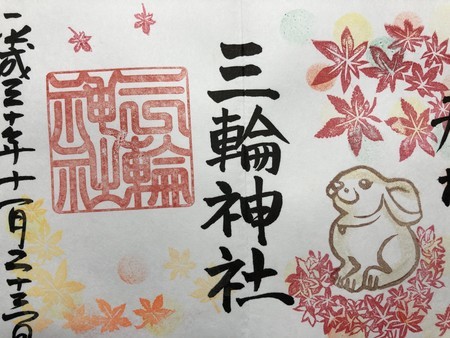 三輪神社
三輪
神社
平成三十年十一月二十三日